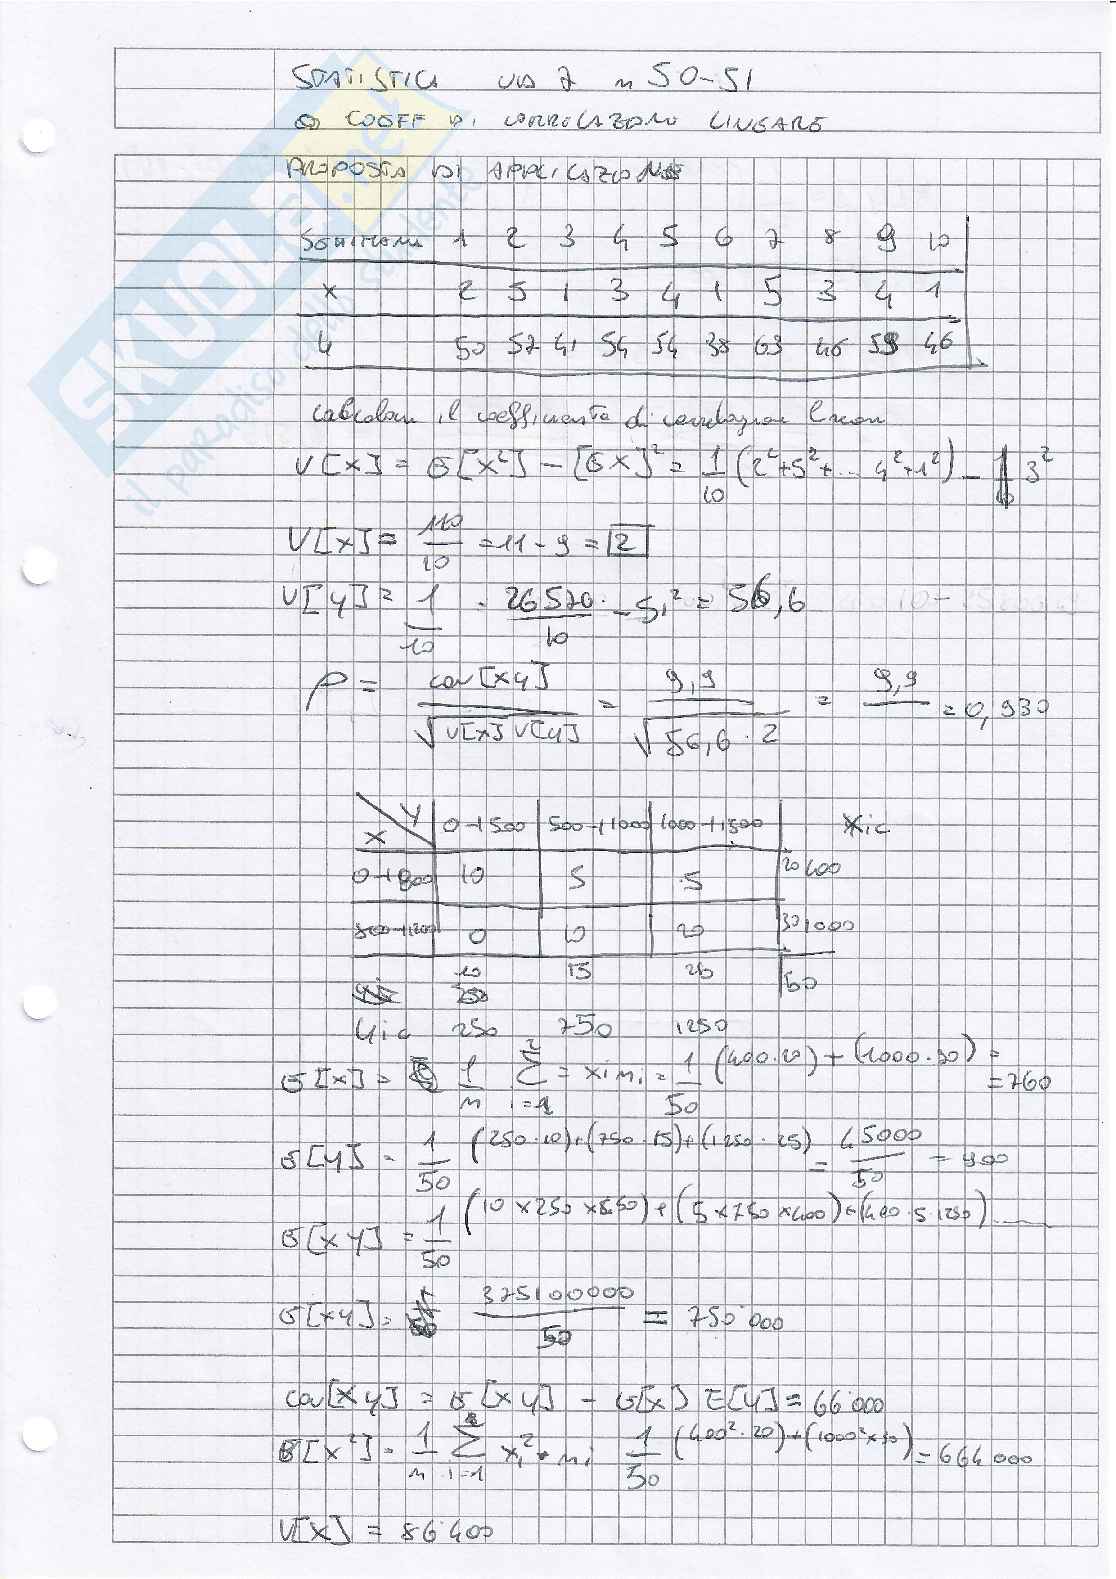 STATISTICA 50-51
COEFF DI CORRELAZIONE LINEARE
PROPOSTA DI APPLICAZIONE
SETTIMANA 1 2 3 4 5 6 7 8 9 10
x 2 5 1 3 4 1 5 3 4 1
y 50 57 41 54 54 38 63 46 59 46
calcolare il coefficiente di correlazione lineare
V[x] = E[x²] - [Ex]² = 1/10 (2²+5²+... 4²+1²) - 3²
V[x] = 110/10 = 11 - 9 = 2
V[y] = 1/10 · 26570/10 - 51² = 56,6
ρ = cov[xy] / √V[x] V[y] = 9,9 / √56,6 · 2 = 9,9 / = 0,930
x y 0-|500 500-|1000 1000-|1500 xic
0-|800 10 5 5 20 400
800-|1200 0 10 20 30 1000
10 15 25 50
yic 250 750 1250
E[x] = 1/n Σ i=1 2 = xi ni = 1/50 (400·20) + (1000·30) = 760
E[y] = 1/50 (250·10) + (750·15) + (1250·25) = 45000/50 = 900
E[xy] = 1/50 (10×250×) + (5×750×400) + (400·5·1250) ......
E[xy] = 375100000/50 = 750'000
cov[xy] = E[xy] - E[x] E[y] = 66'000
E[x²] = 1/n Σ i=1 xi² · ni 1/50 (400²·20) + (1000²×30) = 664000
V[x] = 86'400
SKUOLA.net
il paradiso dello studente